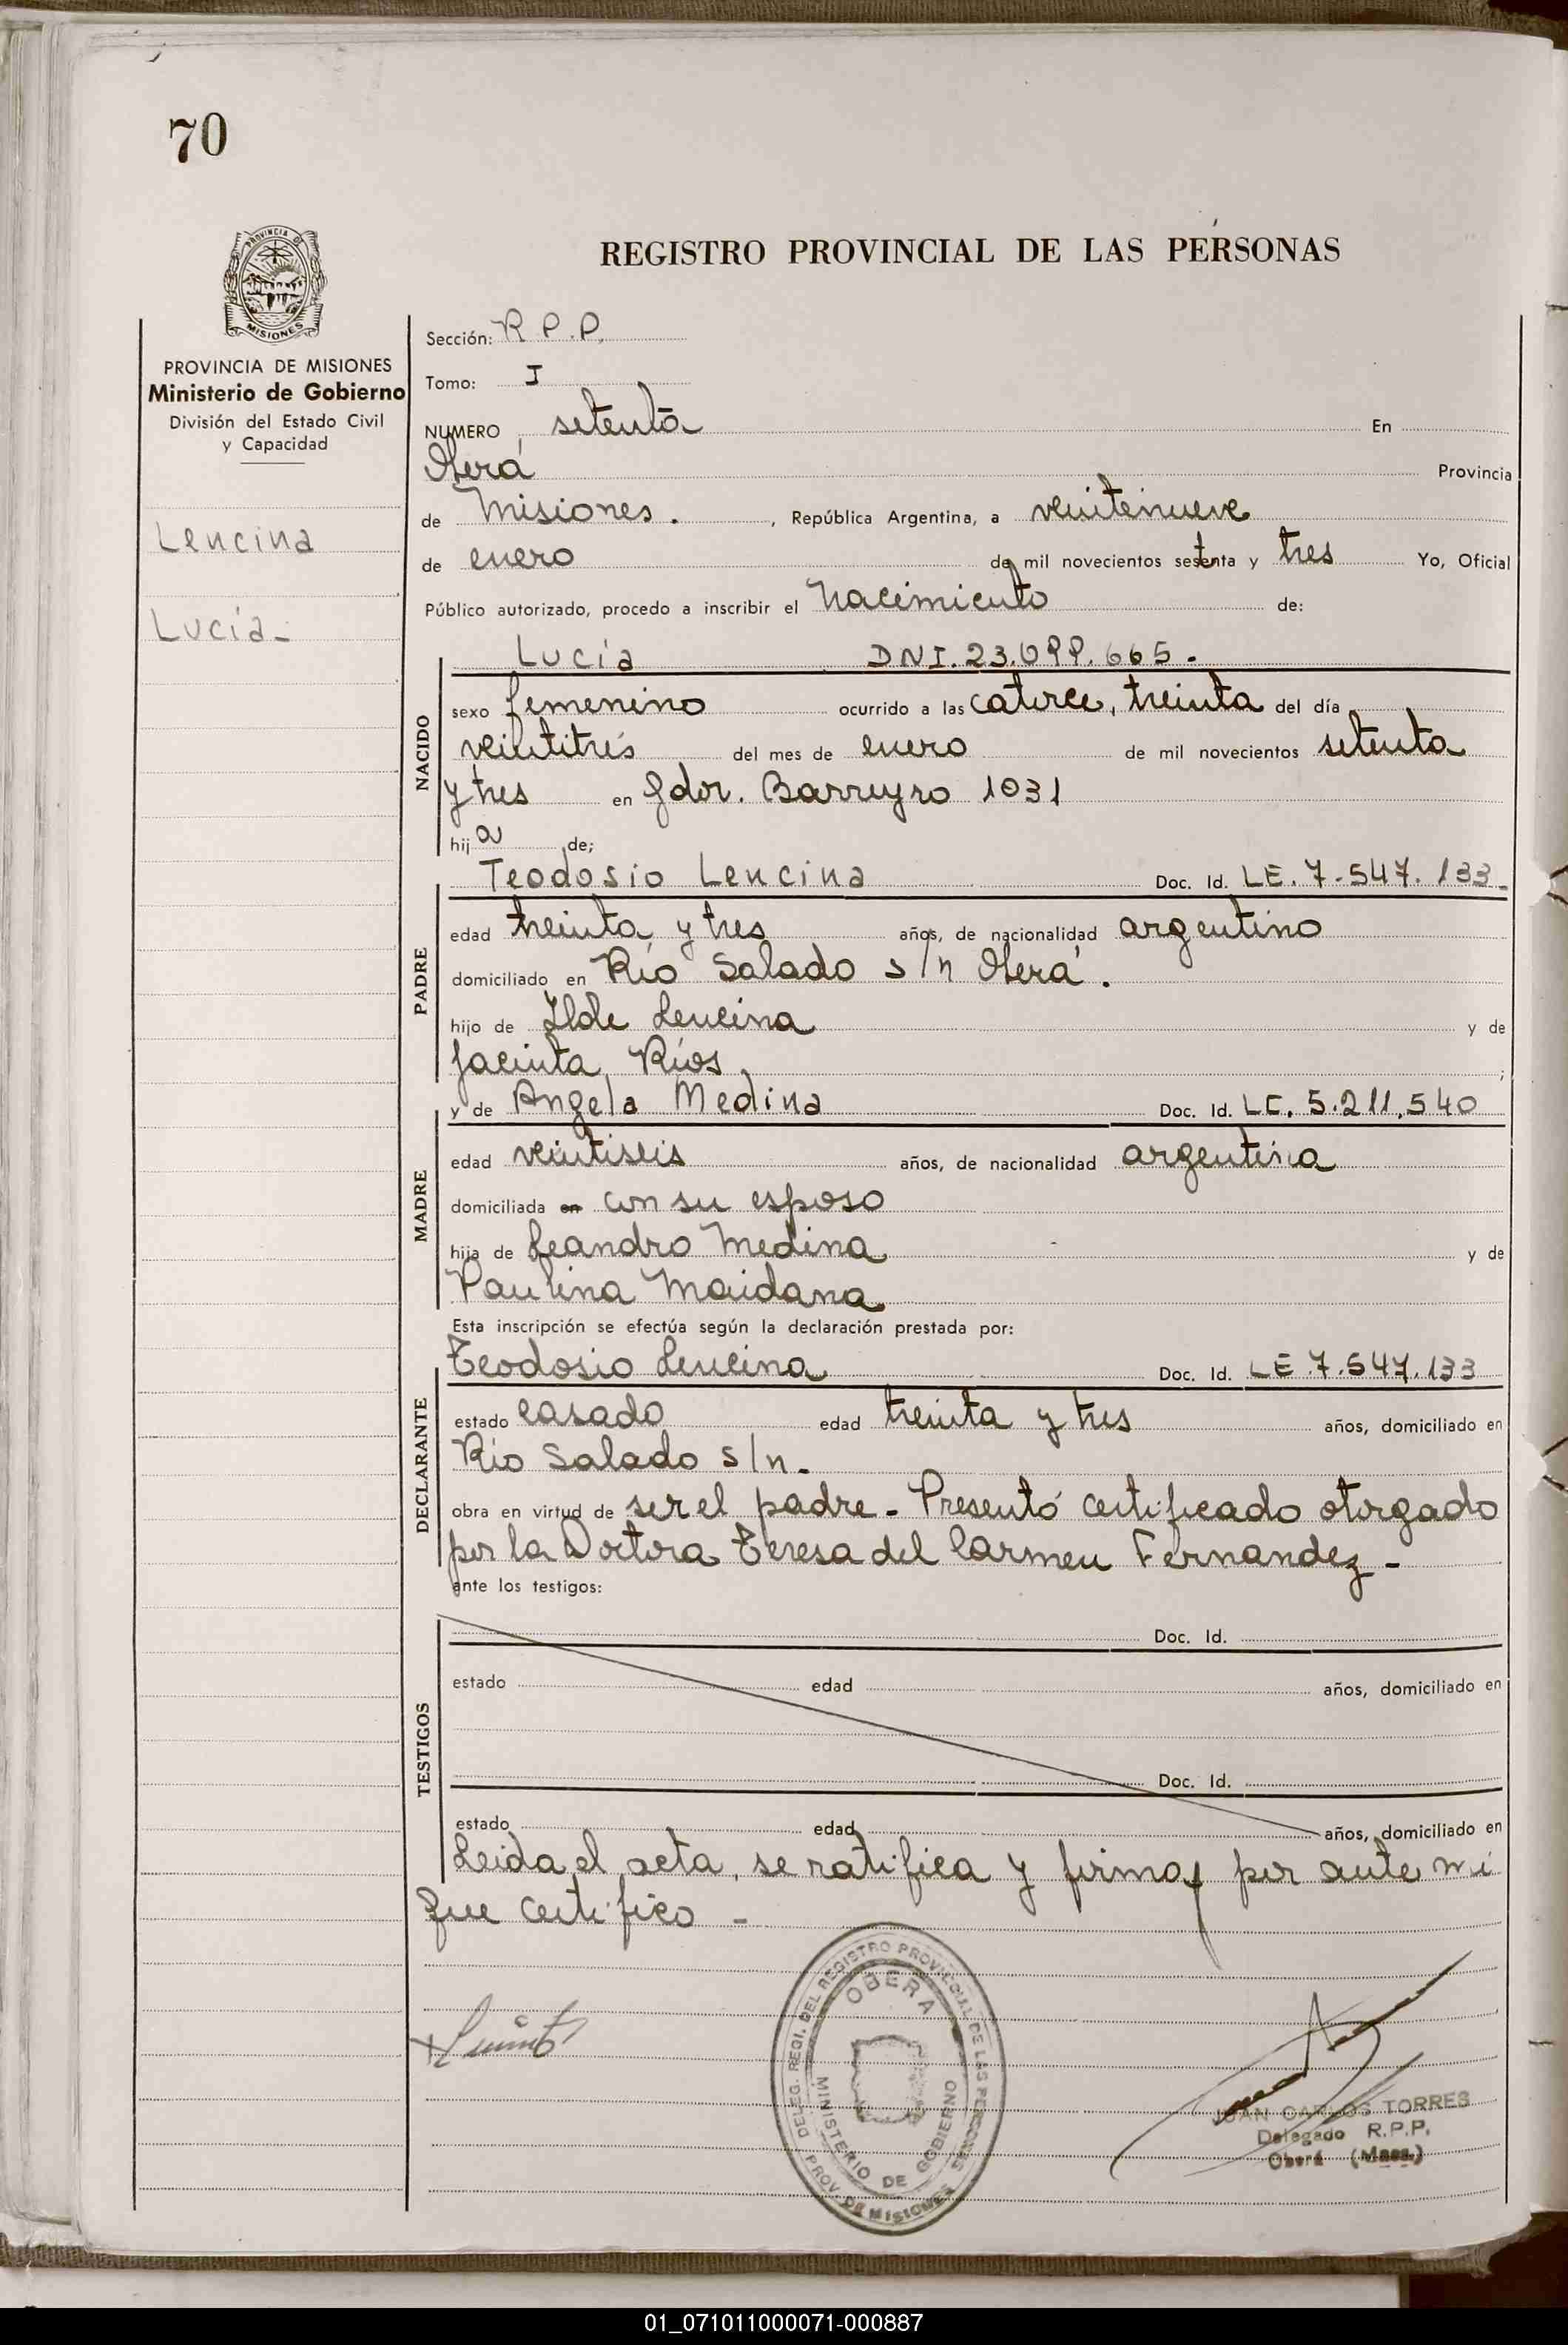 70
PROVINCIA DE
MISIONES
PROVINCIA DE MISIONES
Ministerio de Gobierno
División del Estado Civil
y Capacidad
Lencina
Lucía-
REGISTRO PROVINCIAL DE LAS PERSONAS
Sección: R P.P.
Tomo: I
NUMERO setenta En
Oberá Provincia
de Misiones. , República Argentina, a veintenueve
de enero de mil novecientos setenta y tres Yo, Oficial
Público autorizado, procedo a inscribir el nacimiento de:
Lucía DNI. 23.099.665.
NACIDO
sexo femenino ocurrido a las catorce, treinta del día
veintitrés del mes de enero de mil novecientos setenta
y tres en gdor. Barreyro 1031
hija de;
Teodosio Lencina Doc. Id. LE. 7.547.133-
PADRE
edad treinta y tres años, de nacionalidad argentino
domiciliado en Río Salado s/n Oberá.
hijo de Lencina y de
Jacinta Ríos ;
y de Angela Medina Doc. Id. LC. 5.211.540
MADRE
edad veintiseis años, de nacionalidad argentina
domiciliada en con su esposo
hija de Leandro Medina y de
Paulina Maidana
Esta inscripción se efectúa según la declaración prestada por:
Teodosio Lencina Doc. Id. LE 7.547.133
DECLARANTE
estado casado edad treinta y tres años, domiciliado en
Río Salado s/n.
obra en virtud de ser el padre - Presentó certificado otorgado
por la Doctora Teresa del Carmen Fernandez -
ante los testigos:
TESTIGOS
Doc. Id.
estado edad años, domiciliado en
Doc. Id.
estado edad años, domiciliado en
Leida el acta, se ratifica y firma, por ante mi
que certifico -
DELEG. REGI. DEL REGISTRO PROVINCIAL DE LAS PERSONAS
OBERA
MINISTERIO DE GOBIERNO
PROV. DE MISIONES
JUAN CARLOS TORRES
Delegado R.P.P.
Oberá (Mnes.)
01_071011000071-000887